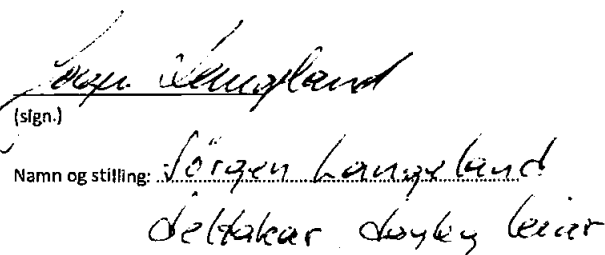 Jörgen Langeland
(sign.)
Namn og stilling: Jörgen Langeland
deltakar dagleg leiar